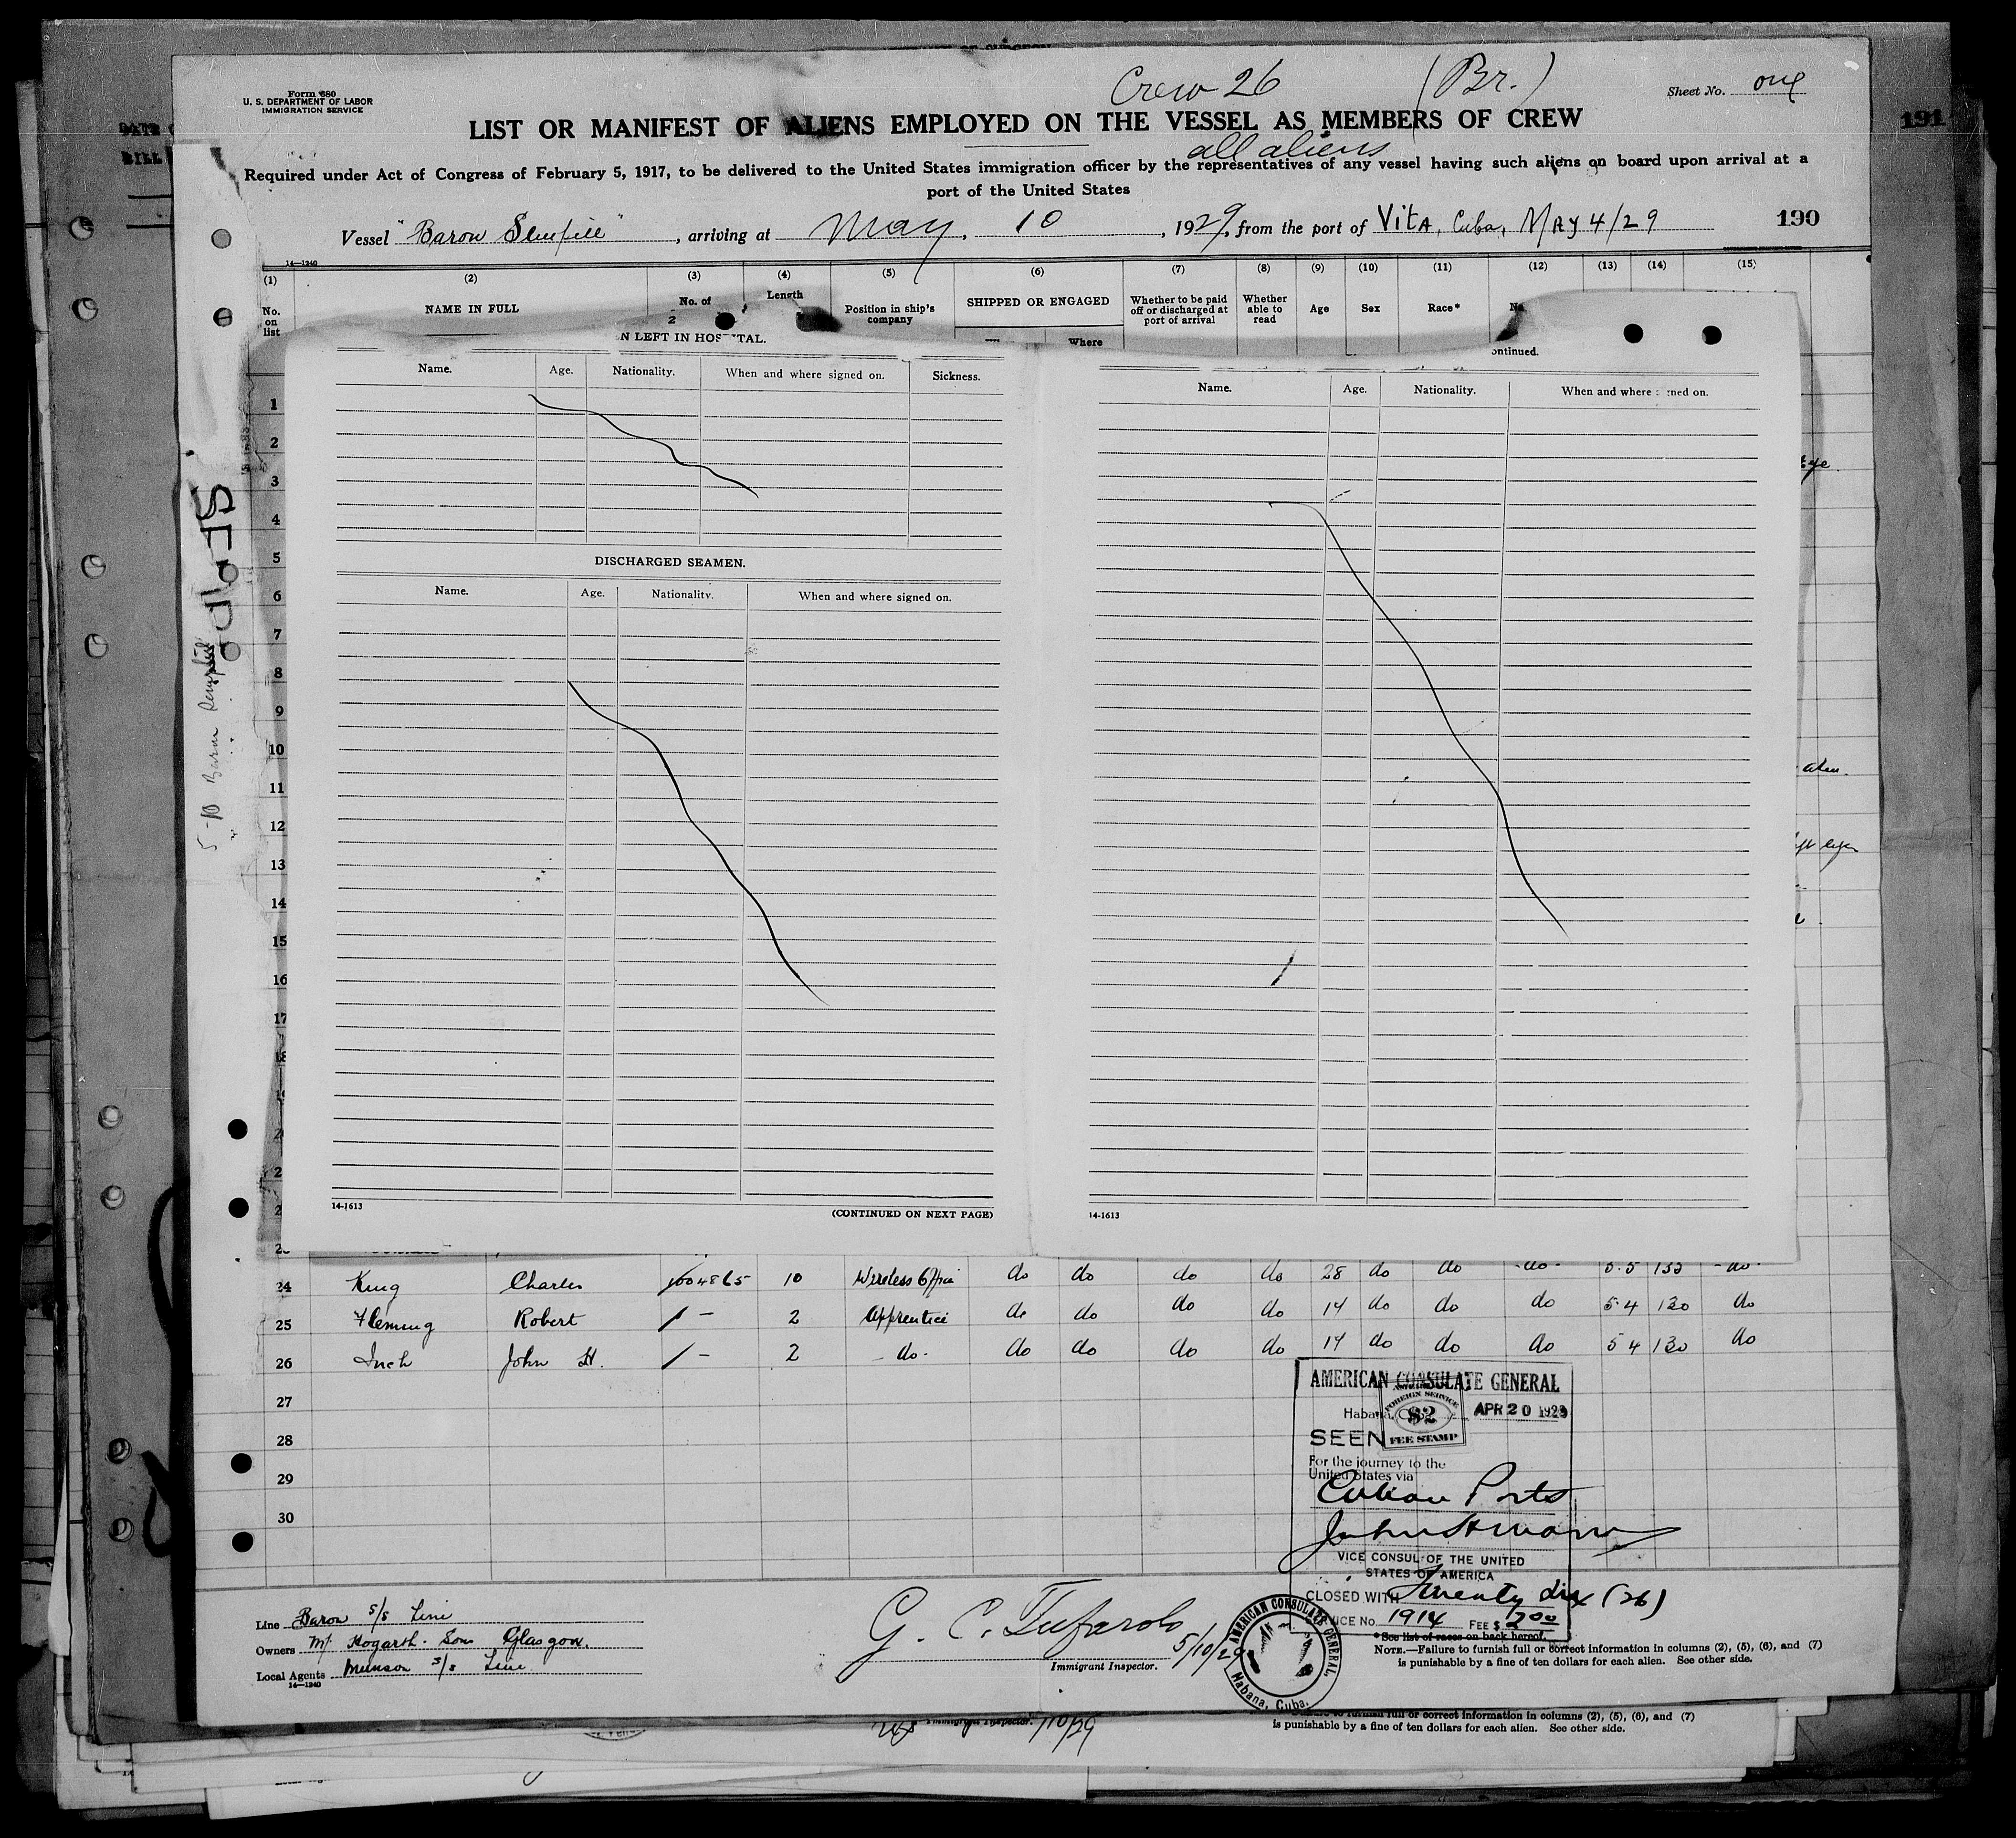 Crew 26 (Br.)
Form 680
U. S. DEPARTMENT OF LABOR
IMMIGRATION SERVICE
Sheet No. one
191
LIST OR MANIFEST OF ALIENS EMPLOYED ON THE VESSEL AS MEMBERS OF CREW
all aliens
Required under Act of Congress of February 5, 1917, to be delivered to the United States immigration officer by the representatives of any vessel having such aliens on board upon arrival at a
port of the United States
Vessel "Baron Sempill", arriving at May, 10, 1929, from the port of Vita, Cuba, May 4/29
190
14—1240
(1) (2) (3) (4) (5) (6) (7) (8) (9) (10) (11) (12) (13) (14) (15)
No. on list
NAME IN FULL
No. of
Length
Position in ship's company
SHIPPED OR ENGAGED
Where
Whether to be paid off or discharged at port of arrival
Whether able to read
Age
Sex
Race*
LEFT IN HOSPITAL.
Name. Age. Nationality. When and where signed on. Sickness.
DISCHARGED SEAMEN.
Name. Age. Nationality. When and where signed on.
14-1613
(CONTINUED ON NEXT PAGE)
Name. Age. Nationality. When and where signed on.
14-1613
5-10 Baron Sempill
1
2
3
4
5
6
7
8
9
10
11
12
13
14
15
16
17
24 King Charles 1004865 10 Wireless do do do do 28 do do do 5.5 135 do
25 Fleming Robert — 2 Apprentice do do do do 17 do do do 5.4 130 do
26 Inch John H. — 2 do do do do do 17 do do do 5 4 130 do
27
28
29
30
AMERICAN CONSULATE GENERAL
Habana, APR 20 1929
FOREIGN SERVICE
$2
FEE STAMP
SEEN
For the journey to the
United States via
Cuban Ports
VICE CONSUL OF THE UNITED
STATES OF AMERICA
CLOSED WITH Twenty Six (26)
No. 1914 FEE $ 200
AMERICAN CONSULATE GENERAL
Habana, Cuba.
Line Baron S/S Line
Owners Mr. Hogarth. Sons Glasgow.
Local Agents Munson S/S Line.
14—1240
G. C. Tufarolo 5/10/29
Immigrant Inspector.
*See list of races on back hereof.
NOTE.—Failure to furnish full or correct information in columns (2), (5), (6), and (7)
is punishable by a fine of ten dollars for each alien. See other side.
Immigrant Inspector.
furnish full or correct information in columns (2), (5), (6), and (7)
is punishable by a fine of ten dollars for each alien. See other side.